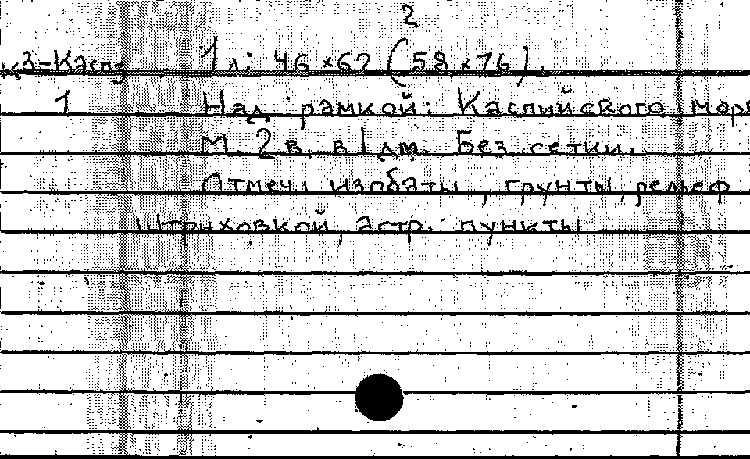 2
К3-Касп 1 л: 46 × 62 (58 × 76).
1 Над рамкой: Каспийского мор
М. 2 в. в 1 дм. Без сетки.
Отмеч. изобаты, грунты, рельеф
штриховкой, астр. пункты